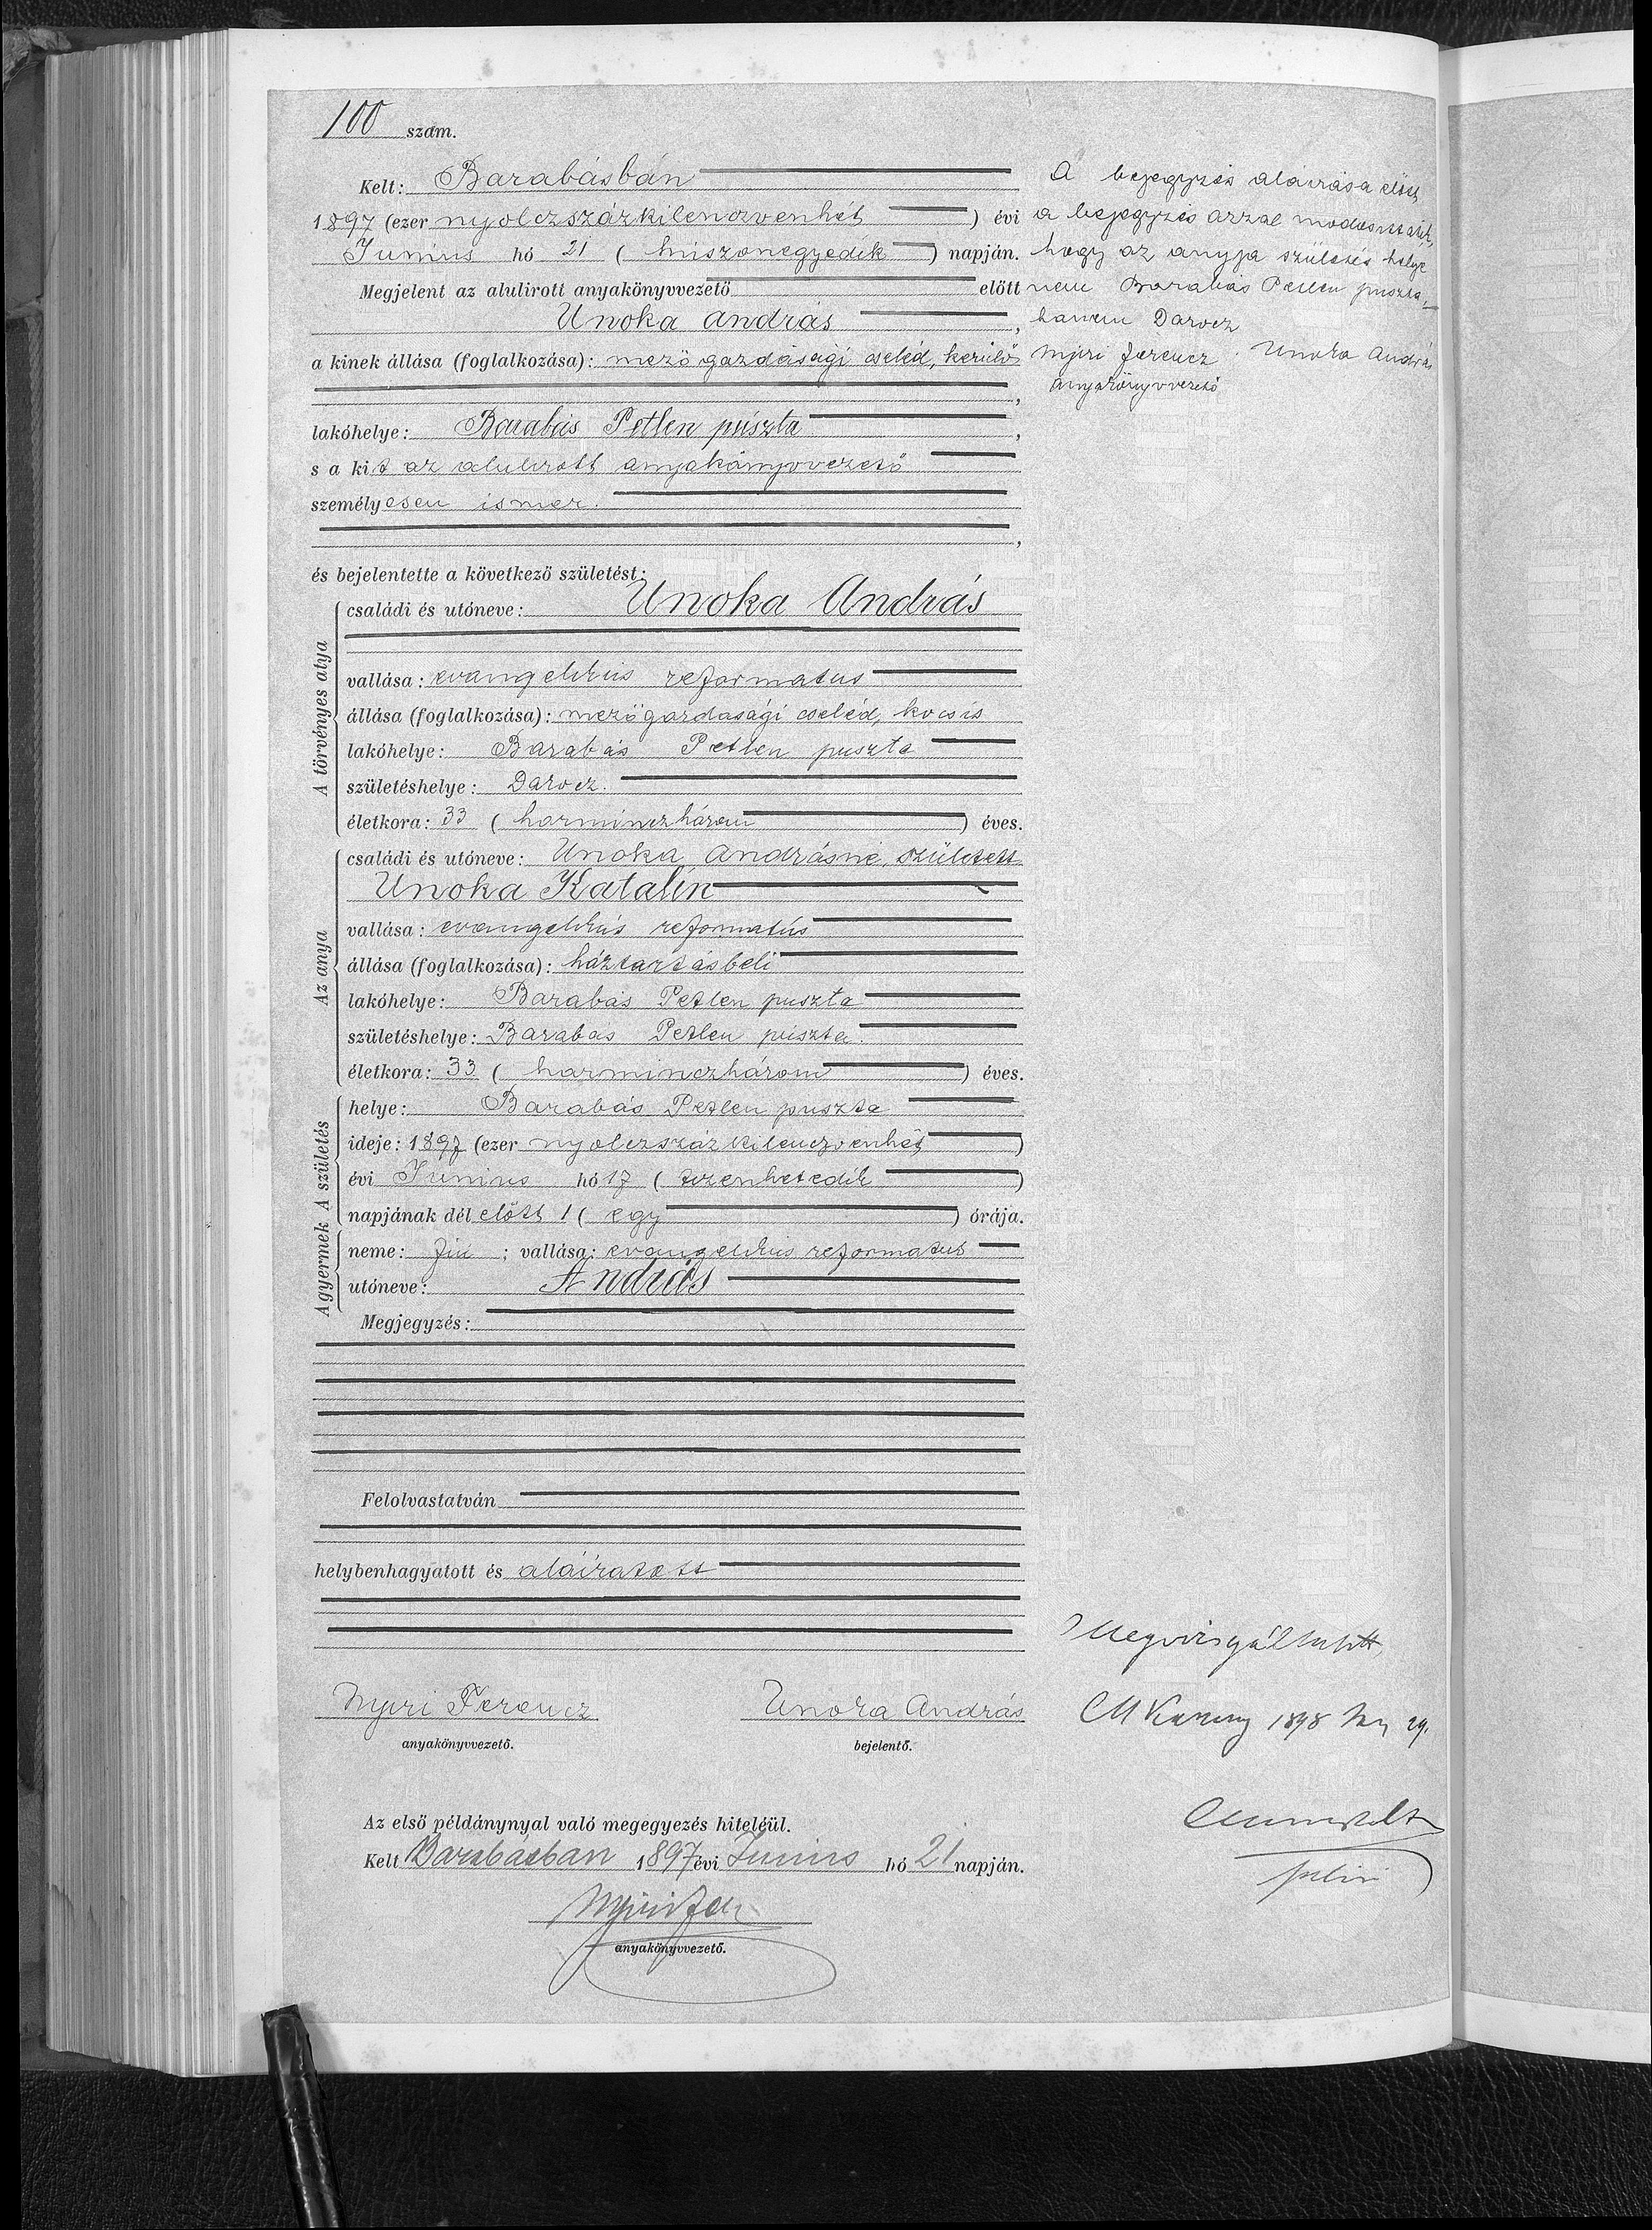 100 szám.
Kelt: Barabásbán
1897 (ezer nyolczszázkilenczvenhét) évi
Junius hó 21 (huszonegyedik) napján.
Megjelent az alulirott anyakönyvvezető előtt
Unoka András,
a kinek állása (foglalkozása): mező gazdasági cseléd, kerülő
,
lakóhelye: Barabás Petlen puszta,
s a kit az alulirott anyakönyvvezető
személyesen ismer.
,
és bejelentette a következő születést:
A törvényes atya
családi és utóneve: Unoka András
vallása: evangelikus reformatus
állása (foglalkozása): mezőgazdasági cseléd, kocsis
lakóhelye: Barabás Petlen puszta
születéshelye: Darocz.
életkora: 33 (harminczhárom) éves.
Az anya
családi és utóneve: Unoka Andrásné, született
Unoka Katalin
vallása: evangelikus reformatus
állása (foglalkozása): háztartásbeli
lakóhelye: Barabás Petlen puszta
születéshelye: Barabás Petlen puszta.
életkora: 33 (harminczhárom) éves.
A születés
helye: Barabás Petlen puszta
ideje: 1897 (ezer nyolczszázkilenczvenhét)
évi Junius hó 17 (tizenhetedik)
napjának dél előtt 1 (egy) órája.
A gyermek
neme: fiu; vallása: evangelikus reformatus
utóneve: András
Megjegyzés:
Felolvastatván
helybenhagyatott és aláiratott
Nyiri Ferencz Unoka András
anyakönyvvezető. bejelentő.
Az első példánynyal való megegyezés hiteléül.
Kelt Barabásban 1897 évi Junius hó 21 napján.
Nyiri Fer
anyakönyvvezető.
A bejegyzés aláirása előtt
a bejegyzés azzal modosittatik,
hogy az anyja születés helye
nem Barabás Petlen puszta,
hanem Darocz
Nyiri Ferencz Unoka András
anyakönyvvezető
Megvizsgáltatott,
1898 29.